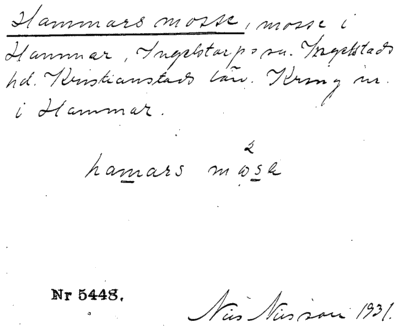 Hammars mosse, mosse i
Hammar, Ingelstorps sn. Ingelstads
hd. Kristianstads län. Kring nr.
i Hammar.
2
hamars mosa
Nr 5448.
Nils Nilsson 1931.